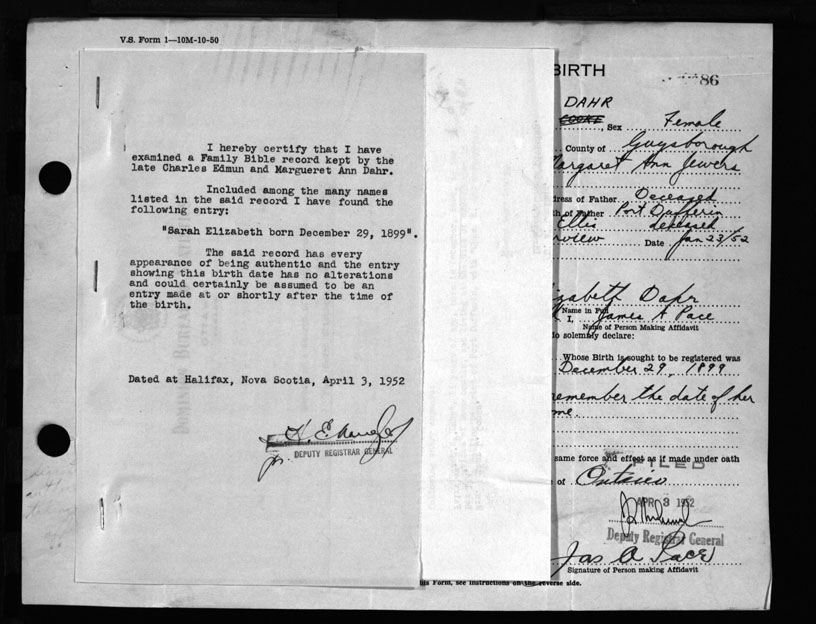 V.S. Form 1—10M-10-50
I hereby certify that I have
examined a Family Bible record kept by the
late Charles Edmun and Margueret Ann Dahr.
Included among the many names
listed in the said record I have found the
following entry:
"Sarah Elizabeth born December 29, 1899".
The said record has every
appearance of being authentic and the entry
showing this birth date has no alterations
and could certainly be assumed to be an
entry made at or shortly after the time of
the birth.
Dated at Halifax, Nova Scotia, April 3, 1952
DEPUTY REGISTRAR GENERAL
BIRTH
86
DAHR
COOKE, Sex Female
County of Guysborough
Margaret Ann Jewers
dress of Father Deceased
th of Father Port Dufferin
Ellis deceased
rview Date Jan 23/52
zabeth Dahr
Name in Full
I, James A Pace
Name of Person Making Affidavit
do solemnly declare:
Whose Birth is sought to be registered was
December 29, 1899
remember the date of her
me.
same force and effect as if made under oath
FILED
of Ontario
APR 3 1952
Deputy Registrar General
Jas A Pace
Signature of Person making Affidavit
his Form, see instructions on the reverse side.